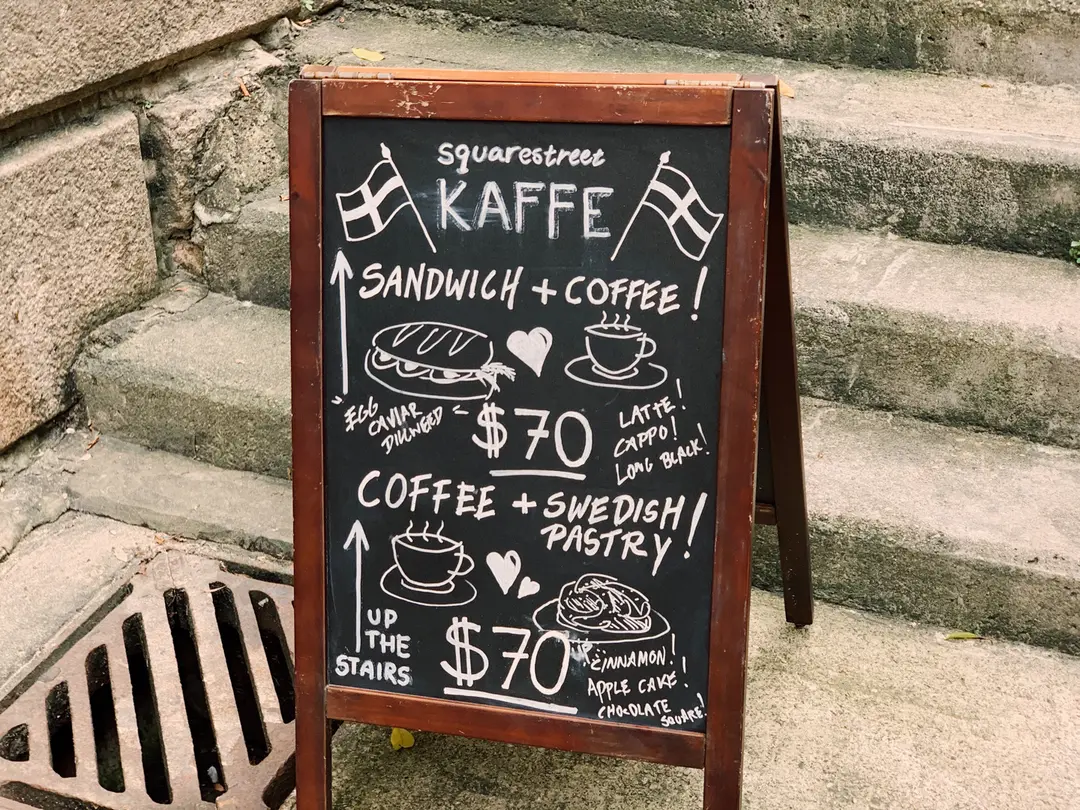 squarestreet
KAFFE
SANDWICH + COFFEE!
"EGG
CAVIAR
DILLWEED"
$70
LATTE!
CAPPO!
LONG BLACK!
COFFEE + SWEDISH
PASTRY!
UP
THE
STAIRS
$70
CINNAMON!
APPLE CAKE!
CHOCOLATE
SQUARE!